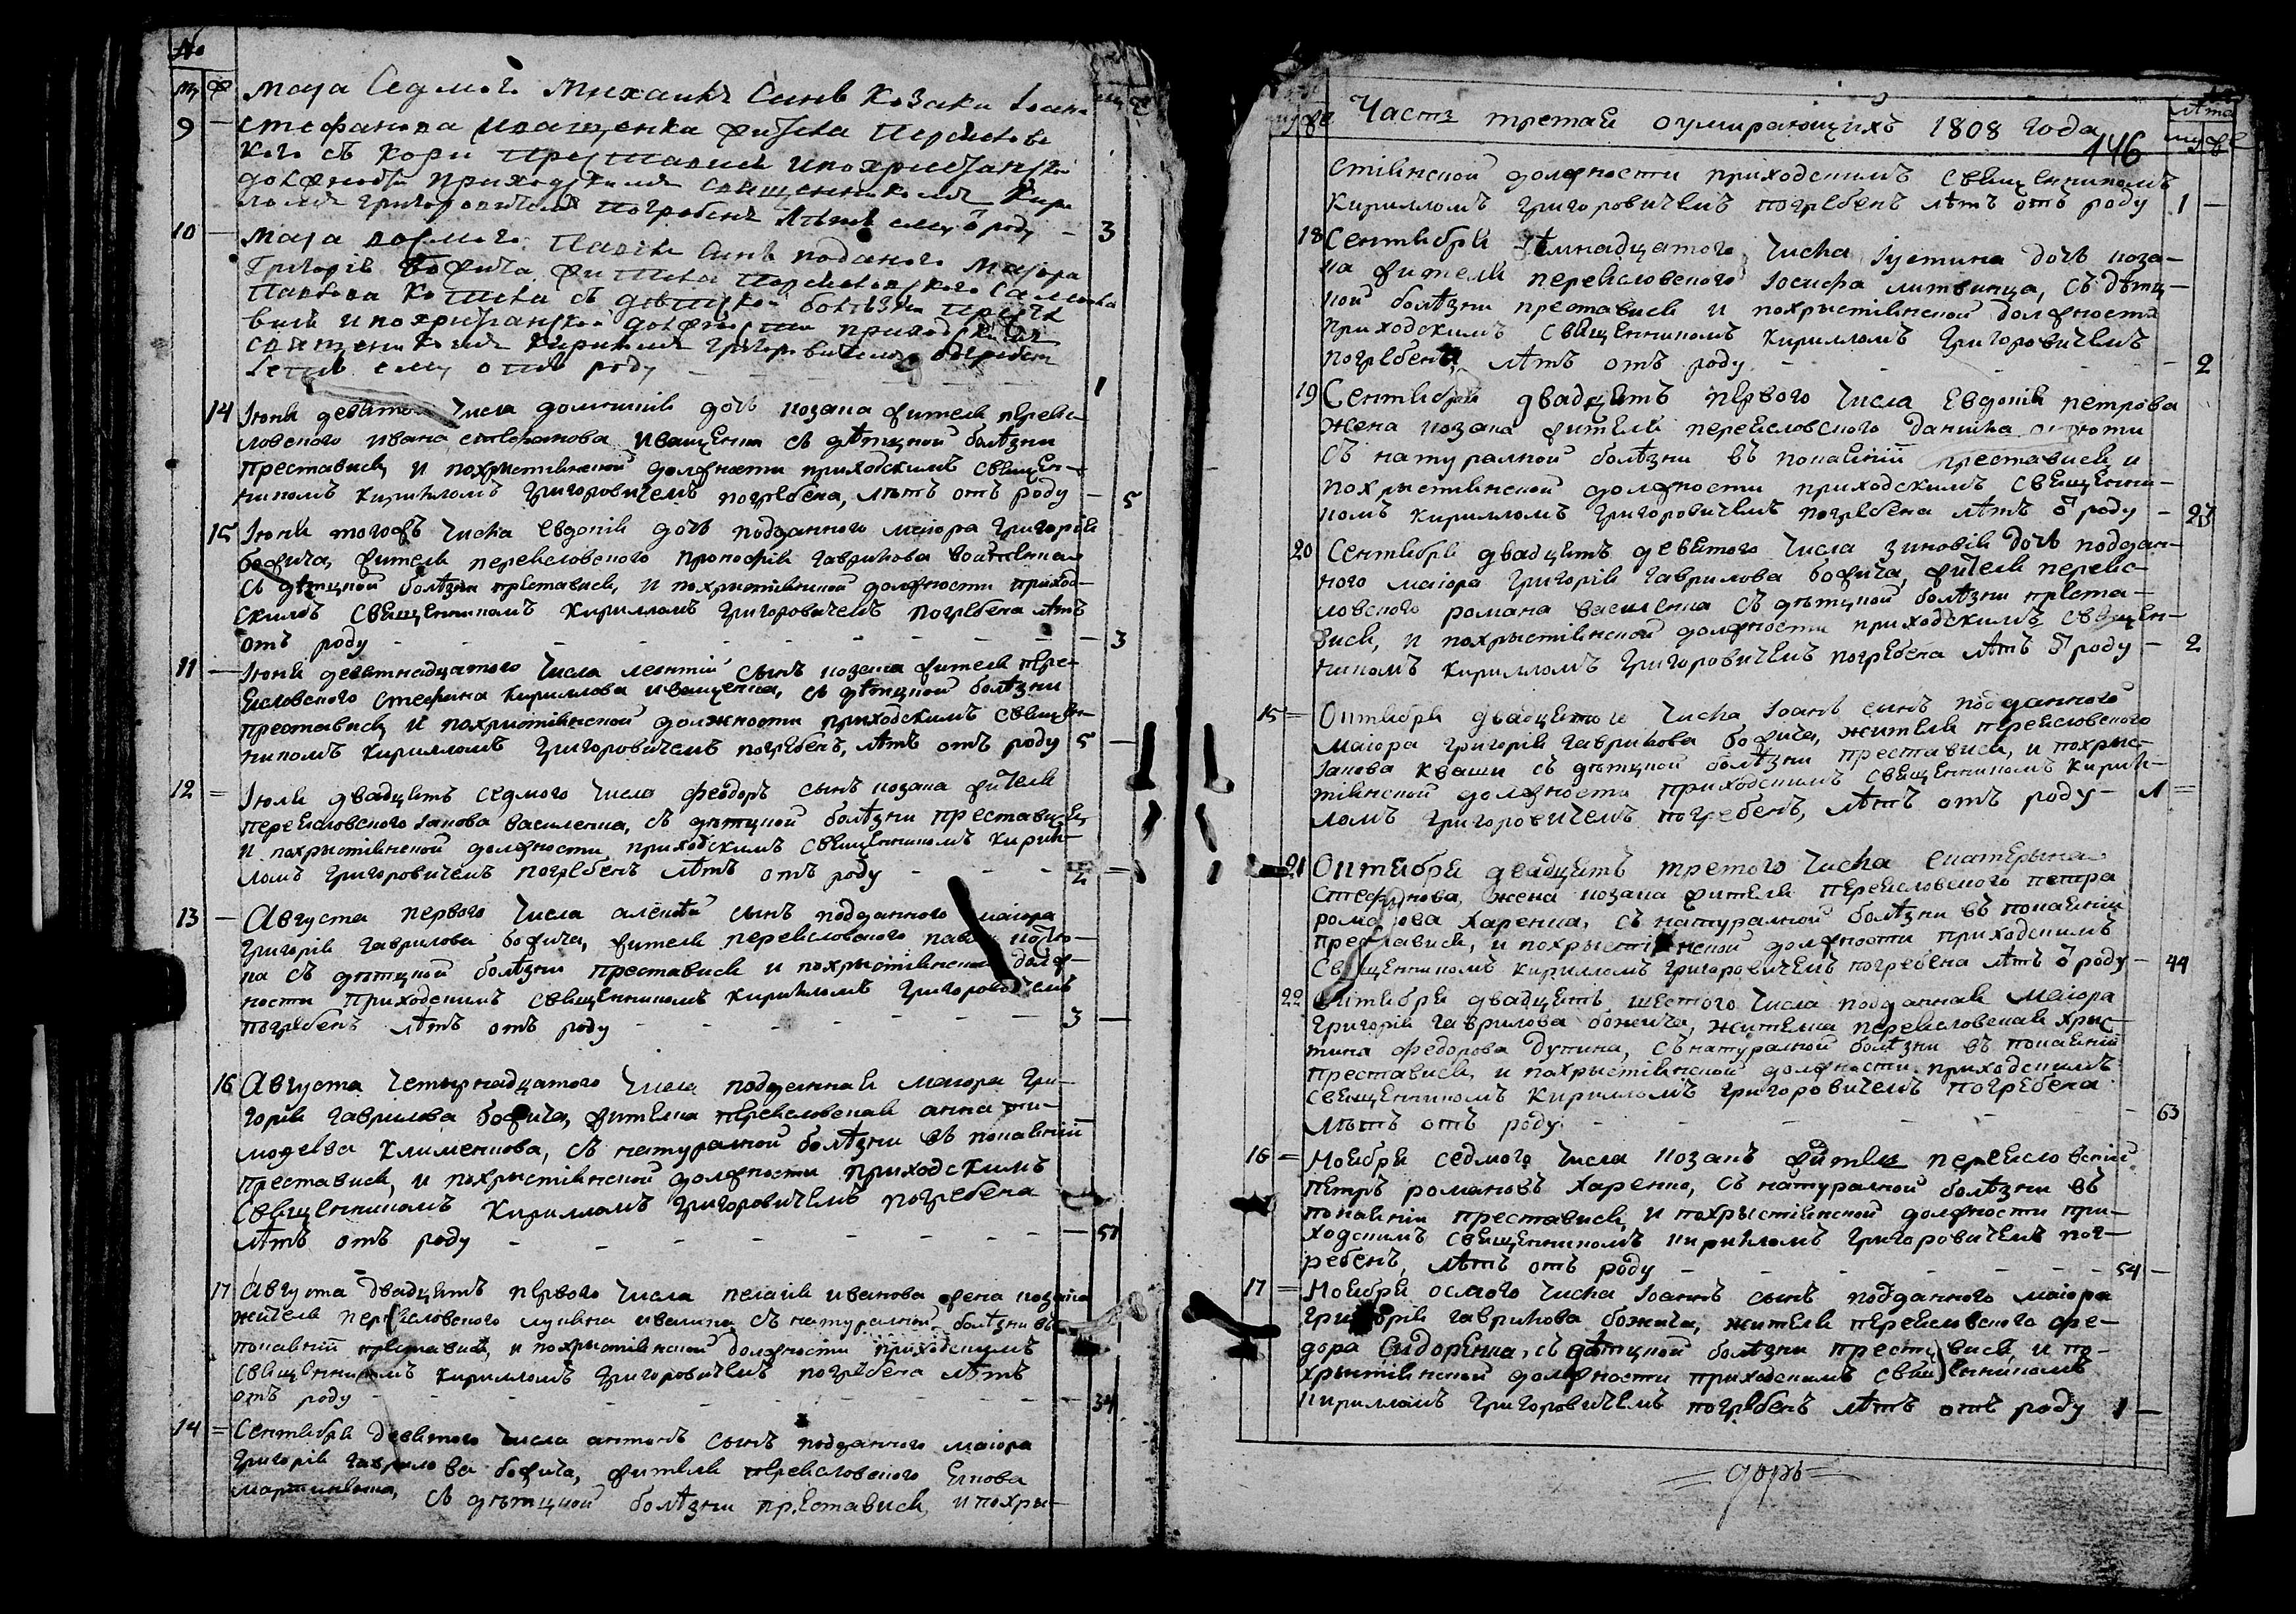 №
м ф
Мaія Седмого Михаилъ Синъ Козака Іоана
9 — Стефанова Иващенка жителя Переясловс
кого съ кори преставися и похристіанской
должности приходскимъ священникомъ Кири
ломъ Григоровичемъ погребенъ Лѣтъ ему ѿ роду — 3
10 — Маія восмого Павелъ Синъ поданого Маіора
Григорія Божича жителя Переясловского
съ дѣтской болѣзни преста
вися и похристіанской должности приходскимъ
священикомъ Кириломъ Григоровичемъ погребенъ
Летъ ему отъ роду — 1
14 Іюня девятого числа доминикія дочь козака жителя переяс-
ловского ивана стефанова иващенка съ дѣтцкой болѣзни
преставися, и похрыстіянской должности приходскимъ священ-
никомъ кирилломъ григоровичемъ погребена, лѣтъ отъ роду — 5
15 Іюня тогожъ числа евдокія дочь подданного маіора григорія
божича, жителя переясловского прокофія гаврилова
съ дѣтцкой болѣзни преставися, и похрыстіянской должности приход-
скимъ священникомъ кирилломъ григоровичемъ погребена лѣтъ
отъ роду — 3
11 — Іюня девятнадцатого числа леонтій сынъ козака жителя пере-
ясловского стефана кириллова иващенка, съ дѣтцкой болѣзни
преставися, и похристіянской должности приходскимъ священ-
никомъ кирилломъ григоровичемъ погребенъ, лѣтъ отъ роду 5 —
12 = Іюля двадцять седмого числа феодоръ сынъ козака жителя
переясловского іакова василенка, съ дѣтцкой болѣзни преставися,
и похрыстіянской должности приходскимъ священникомъ кирил-
ломъ григоровичемъ погребенъ лѣтъ отъ роду — 2 —
13 — Августа первого числа алексѣй сынъ подданного маіора
григорія гаврилова божича, жителя переясловского павла
на съ дѣтцкой болѣзни преставися и похрыстіянской долж-
ности приходскимъ священникомъ кирилломъ григоровичемъ
погребенъ лѣтъ отъ роду — 3 —
16 Августа четырнадцатого числа подданная маіора гри-
горія гаврилова божича, жителка переясловская анна ти-
мофеева клименкова, съ натуралной болѣзни въ покаяніи
преставися, и похрыстіянской должности приходскимъ
священникомъ кирилломъ григоровичемъ погребена
лѣтъ отъ роду — 57
17 Августа двадцять первого числа пелагія иванова жена козака
жителя переясловского лукяна ивасика съ натуралной болѣзни въ
покаяніи преставися, и похрыстіянской должности приходскимъ
священникомъ кирилломъ григоровичемъ погребена лѣтъ
отъ роду — 34
14 = Сентября девятого числа антонъ сынъ подданного маіора
григорія гаврилова божича, жителя переясловского якова
мартиненка, съ дѣтцкой болѣзни преставися, и похры-
Часть третая оумирающихъ 1808 года
146
лѣта
стіянской должности приходскимъ священникомъ
кирилломъ григоровичемъ погребенъ лѣтъ отъ роду 1 —
18 Сентября семнадцатого числа іустина дочь коза-
ка жителя переясловского іосифа литвинца, съ дѣтц-
кой болѣзни преставися и похрыстіянской должности
приходскимъ священникомъ кирилломъ григоровичемъ
погребена, лѣтъ отъ роду — 2
19 Сентября двадцять первого числа евдокія петрова
жена козака жителя переясловского данила
съ натуралной болѣзни въ покаяніи преставися и
похрыстіянской должности приходскимъ священни-
комъ кирилломъ григоровичемъ погребена лѣтъ ѿ роду — 23
20 Сентября двадцять девятого числа зиновія дочь поддан-
ного маіора григорія гаврилова божича, жителя переяс-
ловского романа василенка съ дѣтцкой болѣзни преста-
вися, и похрыстіянской должности приходскимъ священ-
никомъ кирилломъ григоровичемъ погребена лѣтъ ѿ роду — 2
15 = Октября двадцятого числа іоанъ синъ подданного
маіора григорія гаврилова божича, жителя переясловского
іакова кваши съ дѣтцкой болѣзни преставися, и похрыс-
тіянской должности приходскимъ священникомъ кирил-
ломъ григоровичемъ погребенъ, лѣтъ отъ роду — 1 =
21 Октября двадцять третого числа екатерына
стефанова, жена козака жителя переясловского петра
романова харенка, съ натуралной болѣзни въ покаяніи
преставися, и похрыстіянской должности приходскимъ
священникомъ кирилломъ григоровичемъ погребена лѣтъ ѿ роду — 44
22 Октября двадцять шестого числа подданная маіора
григорія гаврилова божича, жителка переясловская хрыс-
тина федорова дупина, съ натуралной болѣзни въ покаяніи
преставися, и похрыстіянской должности приходскимъ
священникомъ кирилломъ григоровичемъ погребена
лѣтъ отъ роду — 63
16 = Ноября седмого числа козакъ житель переясловскій
петръ романовъ харенко, съ натуралной болѣзни въ
покаяніи преставися, и похрыстіянской должности при-
ходскимъ священникомъ кирилломъ григоровичемъ пог-
ребенъ, лѣтъ отъ роду — 54 —
17 = Ноября осмого числа іоаннъ сынъ подданного маіора
григорія гаврилова божича, жителя переясловского фе-
дора сидоренка, съ дѣтцкой болѣзни преставися и по-
хрыстіянской должности приходскимъ священникомъ
кирилломъ григоровичемъ погребенъ лѣтъ отъ роду 1 —